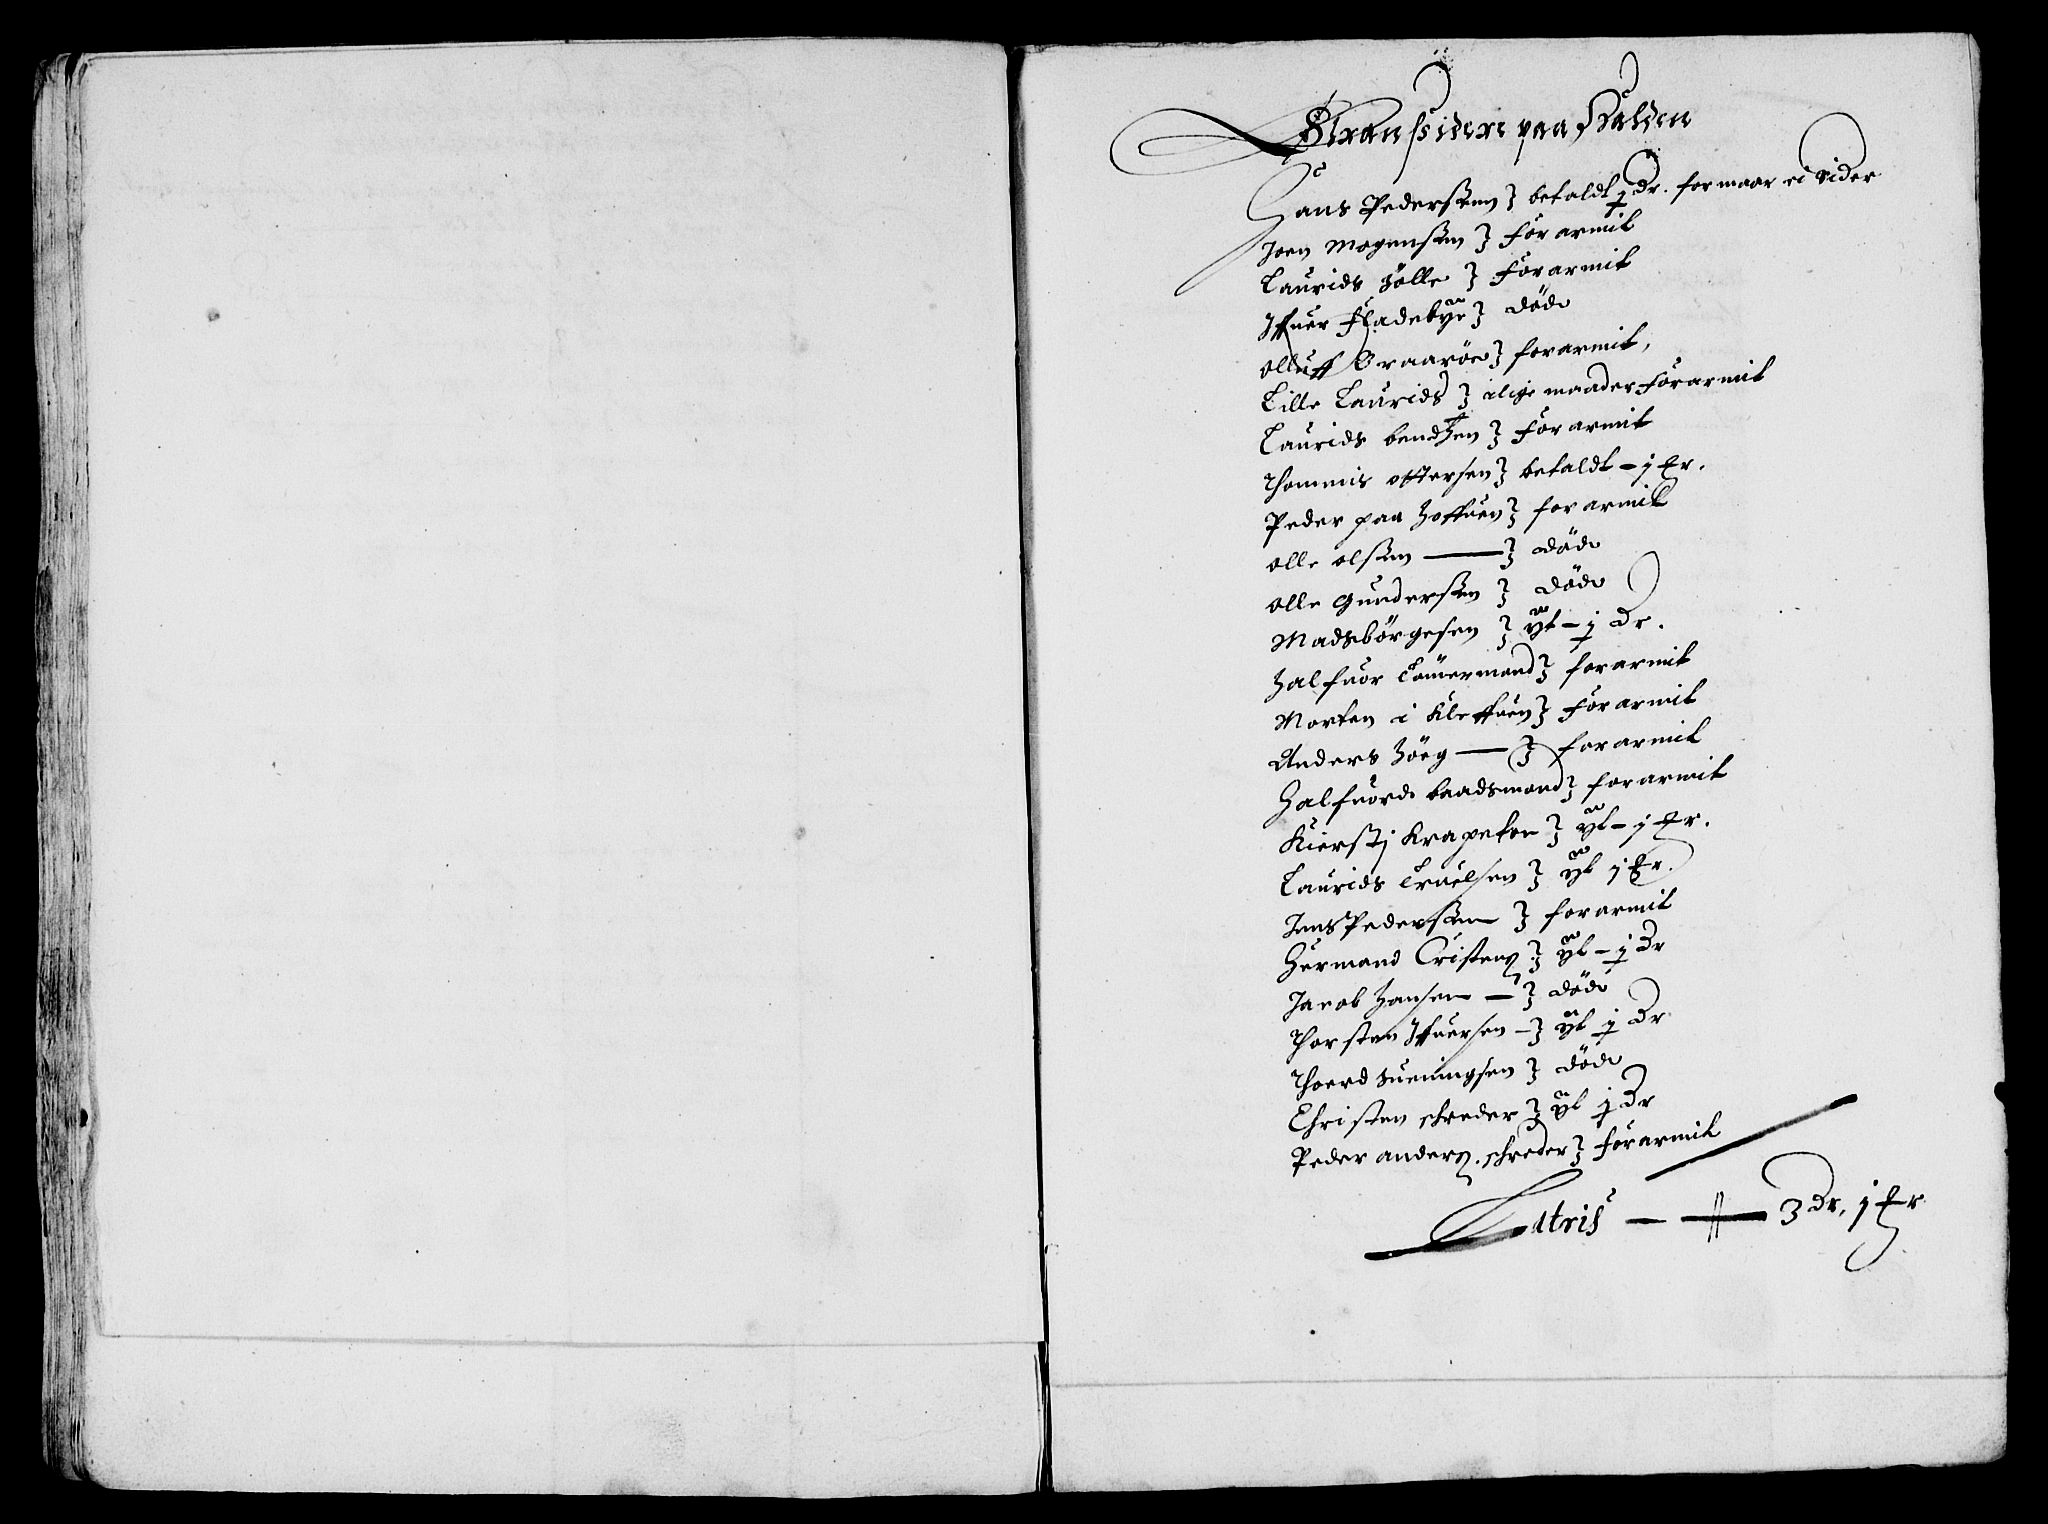 Stransidere paa Halden
Hans Pedersenn } betaldt j dr. formaar ei vider
Joen Mogensen } forarmit
Laurids Jølle } forarmit
Iffuer Fladebye } døde
olluff Graarøe } forarmit,
Lille Laurids } ilige maader forarmit
Laurids bendtzen } forarmit
Thommis ottersen } betaldt - j ℔r.
Peder paa Hoffuen } forarmit
olle olsen —— } døde
olle Gundersen } døde
Madsbørgesen } ÿt - j dr.
Halfuor Tømermand } forarmit
Morten i Kleffuen } forarmit
Anders Høeg — } forarmit
Halfuord baadsmand } forarmit
Kiersti Krapeton } ÿt - j ℔r.
Laurids Truelsen } ÿt j ℔r.
Jens Pedersenn } forarmit
Hermand Cristens } ÿt - j dr
Jacob Hansen — } døde
Thorsten Iffuersen - } ÿt j dr
Thoerd Sueningsen } døde
Christen schreder } ÿt j dr
Peder anders. schreder } forarmit
Latris — — 3 dr, j ℔r